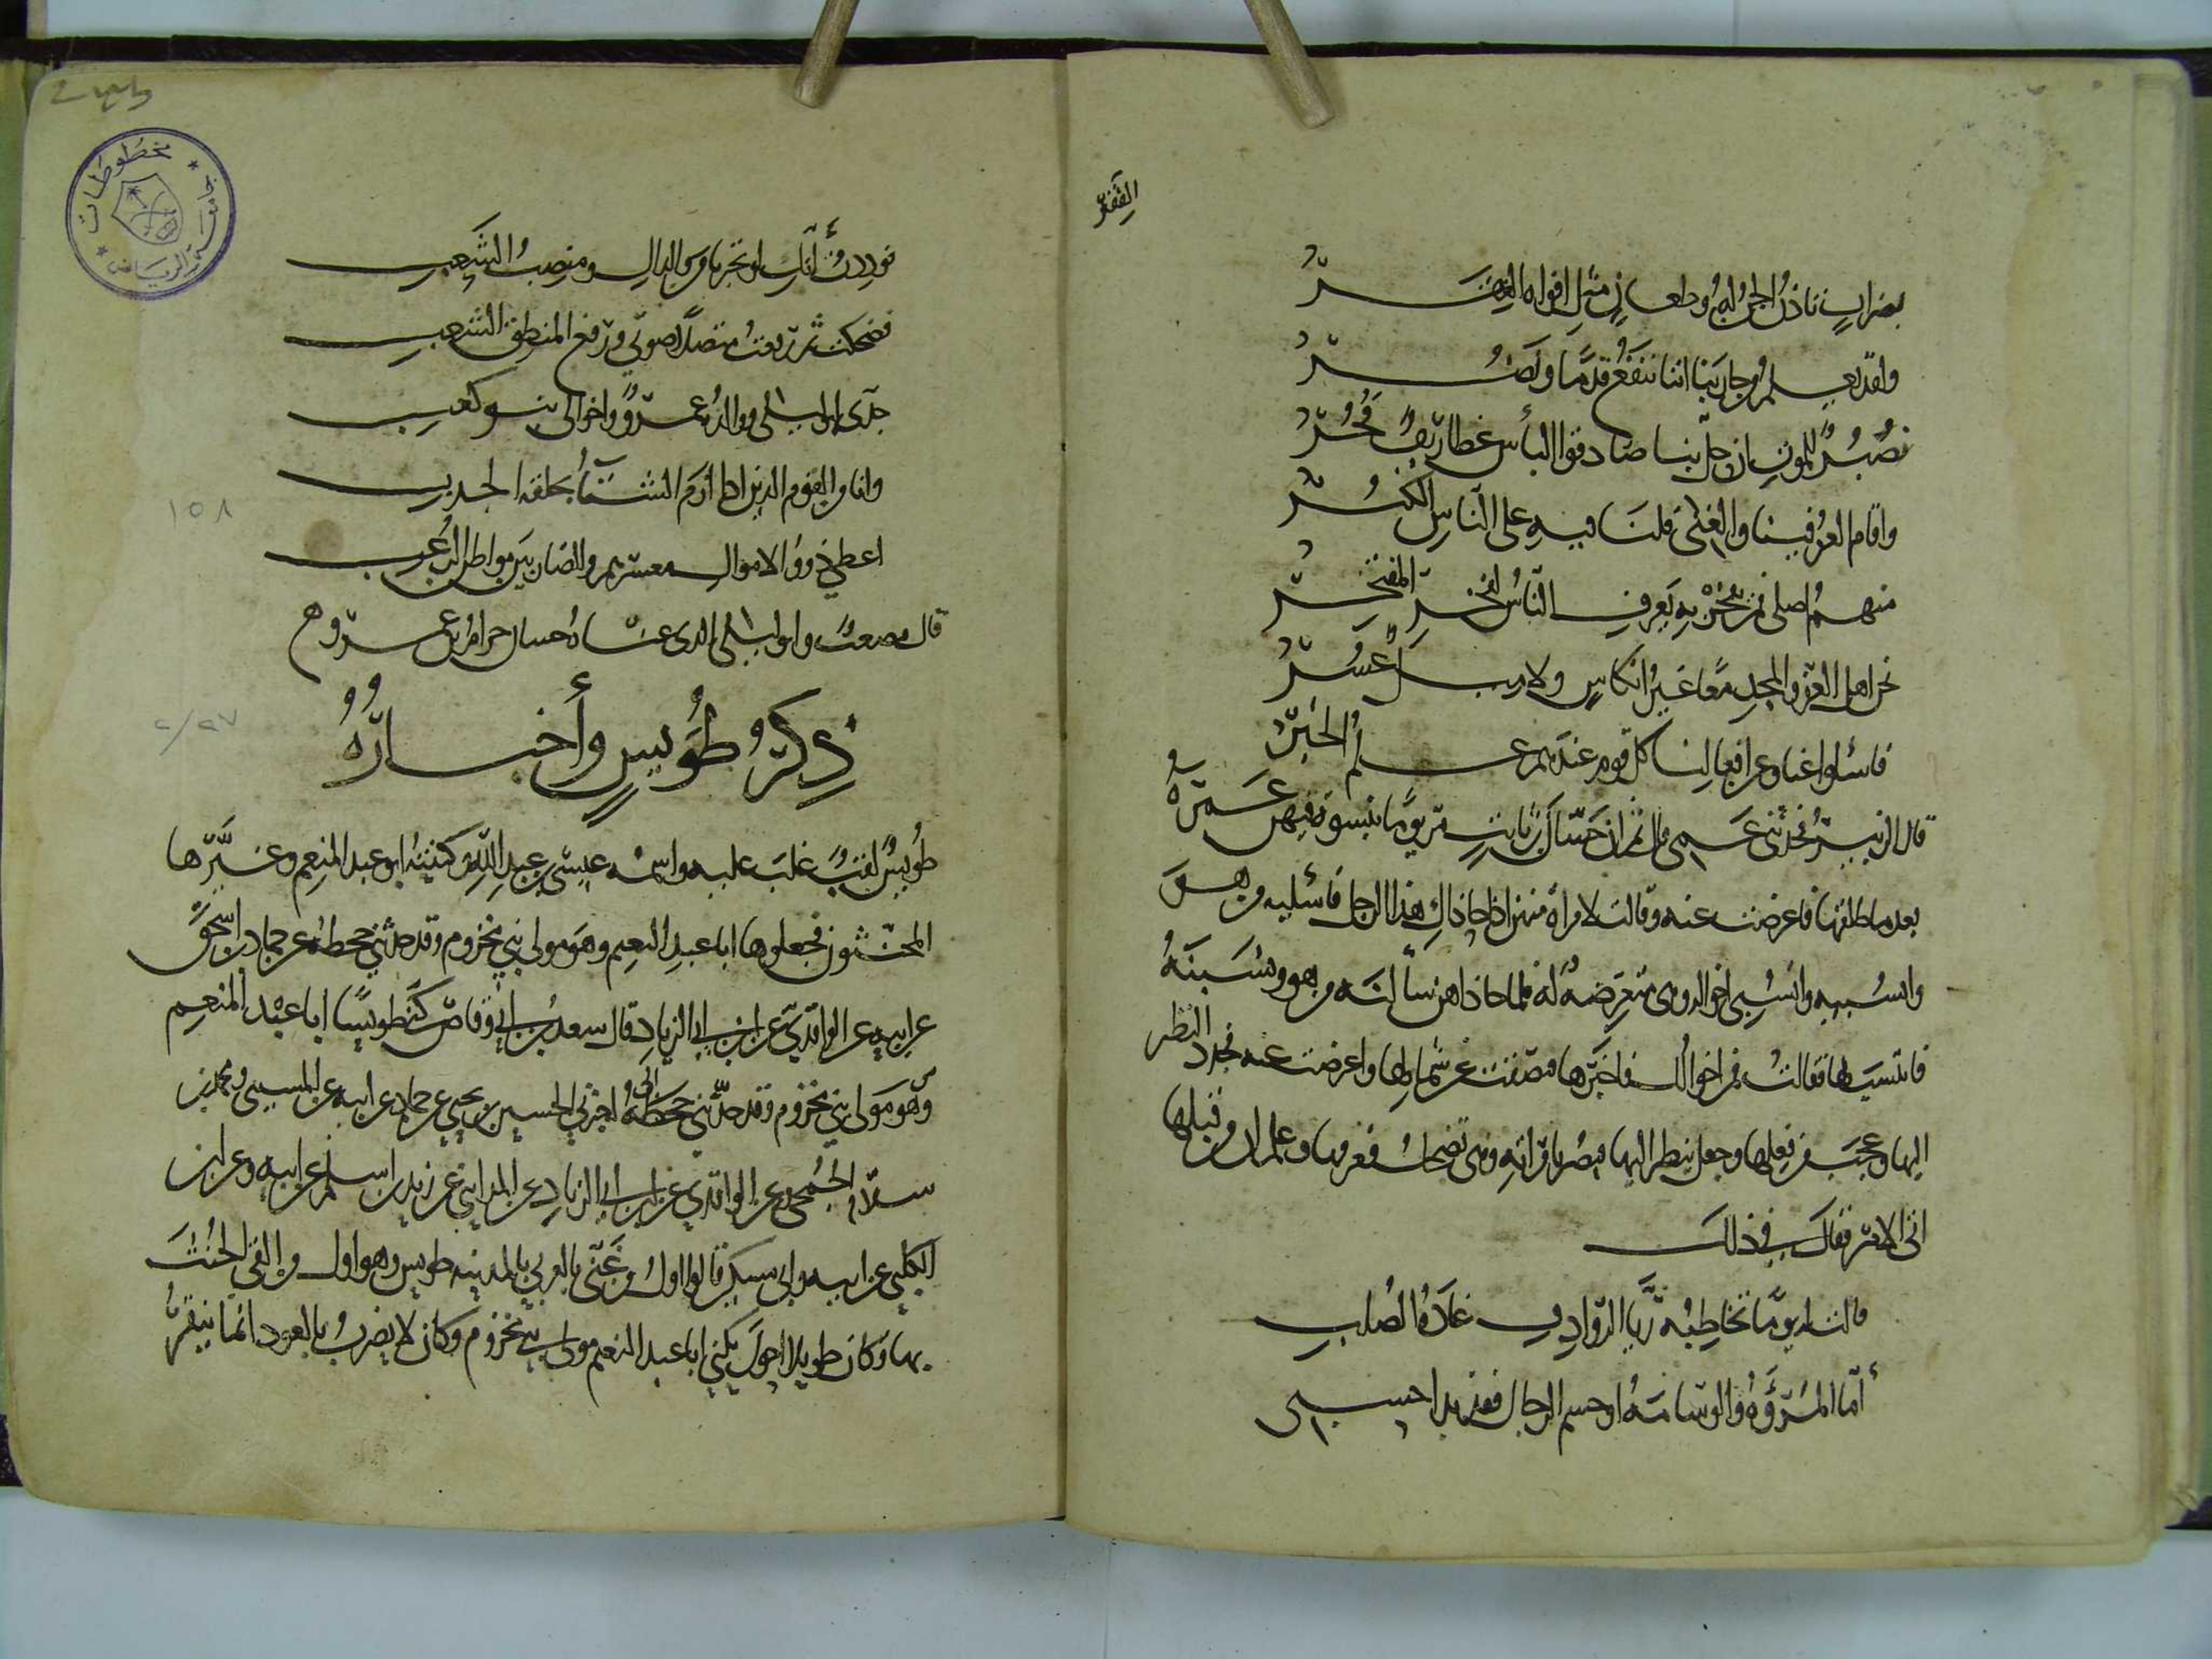 الفقر
بضراب تأذن الجن له وطعان مثل افواه الفقر
ولقد يعلم من حاربنا اننا ننفع قدما ونضر
صبر للموت ان حل بنا صادقوا البأس غطاريف فخر
واقام العز فينا والغنى فلنا فيه على الناس الكبر
منهم اصلى فمن يفخر به يعرف الناس بفخر المفتخر
نحن اهل العز والمجد معا غير انكاس ولا ميل عسر
فاسئلوا عنا وعن افعالنا كل قوم عندهم علم الخبر
قال الزبير فحدثنى عمى قال ثم ان حسان بن ثابت مر يوما بنسوة فيهن عمرة
بعد ما طلقها فاعرضت عنه وقالت لامراة منهن اذا حاذاك هذا الرجل فاسئليه من هو
وانسبيه وانسبى اخواله وهى متعرضة له فلما حاذاهن سألته من هو ونسبته
فانتسب لها فقالت فمن اخوالك فاخبرها فبصقت عن شمالها واعرضت عنه فحدد النظر
اليها وعجب من فعلها وجعل ينظر اليها فبصر بامراته وهى تضحك فعرفها وعلم ان من قبلها
اتى الامر فقال فى ذلك
قالت له يوما تخاطبه ريا الروادف غادة الصلب
أما المروءة والوسامة او جسم الرجال فقد بدا حسبى
فوددت أنك لو تخبرنا من والداك ومنصب الشعب
فضحكت ثم رفعت متصلا صوتى ورفع المنطق الشعب
جدى ابو ليلى ووالده عمرو واخوالى بنو كعب
وانا من القوم الذين اذا أزم الشتاء بحلقة الجدب
اعطى ذوو الاموال معسرهم والضاربين بمواطن الرعب
قال مصعب وابو ليلى الذى عناه حسان حرام بن عمرو
ذكر طويس وأخباره
طويس لقب غلب عليه واسمه عيسى بن عبد الله وكنيته ابو عبد المنعم وغيرها
المخنثون فجعلوها ابا عبد النعيم وهو مولى بنى مخزوم وقد حدثنى جحظة عن حماد بن اسحق
عن ابيه عن الواقدى عن ابن ابى الزناد قال سعد بن ابى وقاص كنى طويسا ابا عبد المنعم
وهو مولى بنى مخزوم وقد حدثنى جحظة اخبرنى الحسين بن يحيى عن حماد عن ابيه عن المسيبى ومحمد بن
سلام الجمحى وعن الواقدى عن ابن ابى الزناد عن المداينى عن زيد بن اسلم عن ابيه وعن ابن
الكلبى عن ابيه وابى مسكين قالوا اول من غنى بالعربى بالمدينة طويس وهو اول من القى الخنث
بها وكان طويلا احول يكنى ابا عبد النعيم مولى بنى مخزوم وكان لا يضرب بالعود انما ينقر
١٥٨
٢/٢٧
مخطوطات
جامعة الرياض